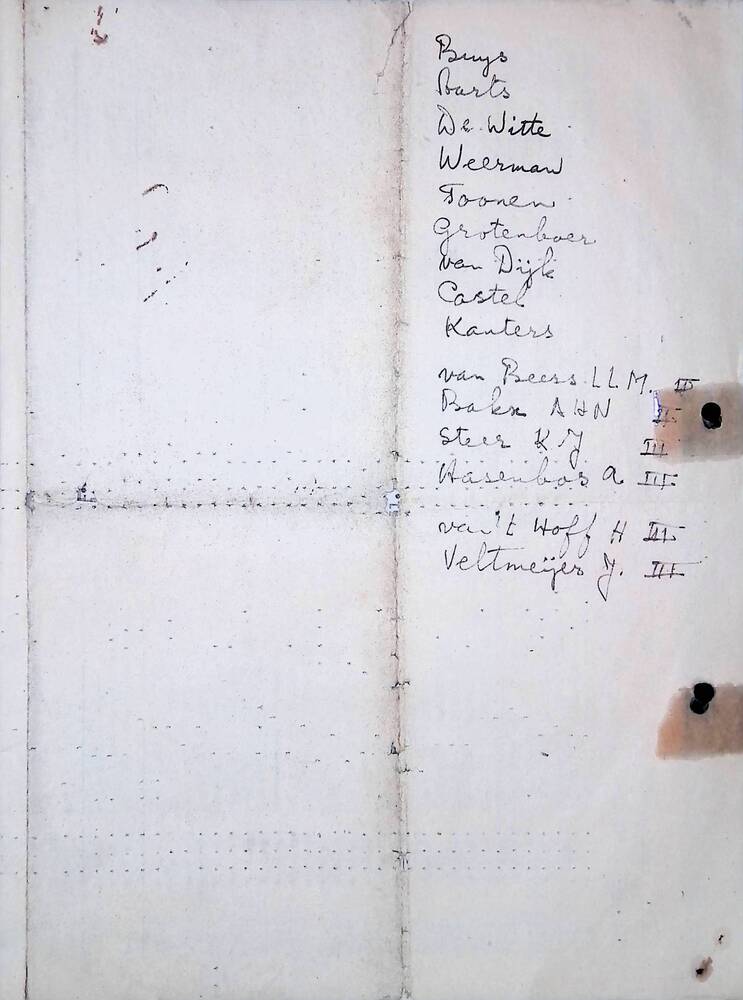 Buys
Barts
De Witte
Weerman
Toonen
Grotenboer
van Dijk
Castel
Kanters
van Beers L L M. III
Bakx A H N III
Steer K J III
Hasenbos A III
van 't Hoff H III
Veltmeijer J. III